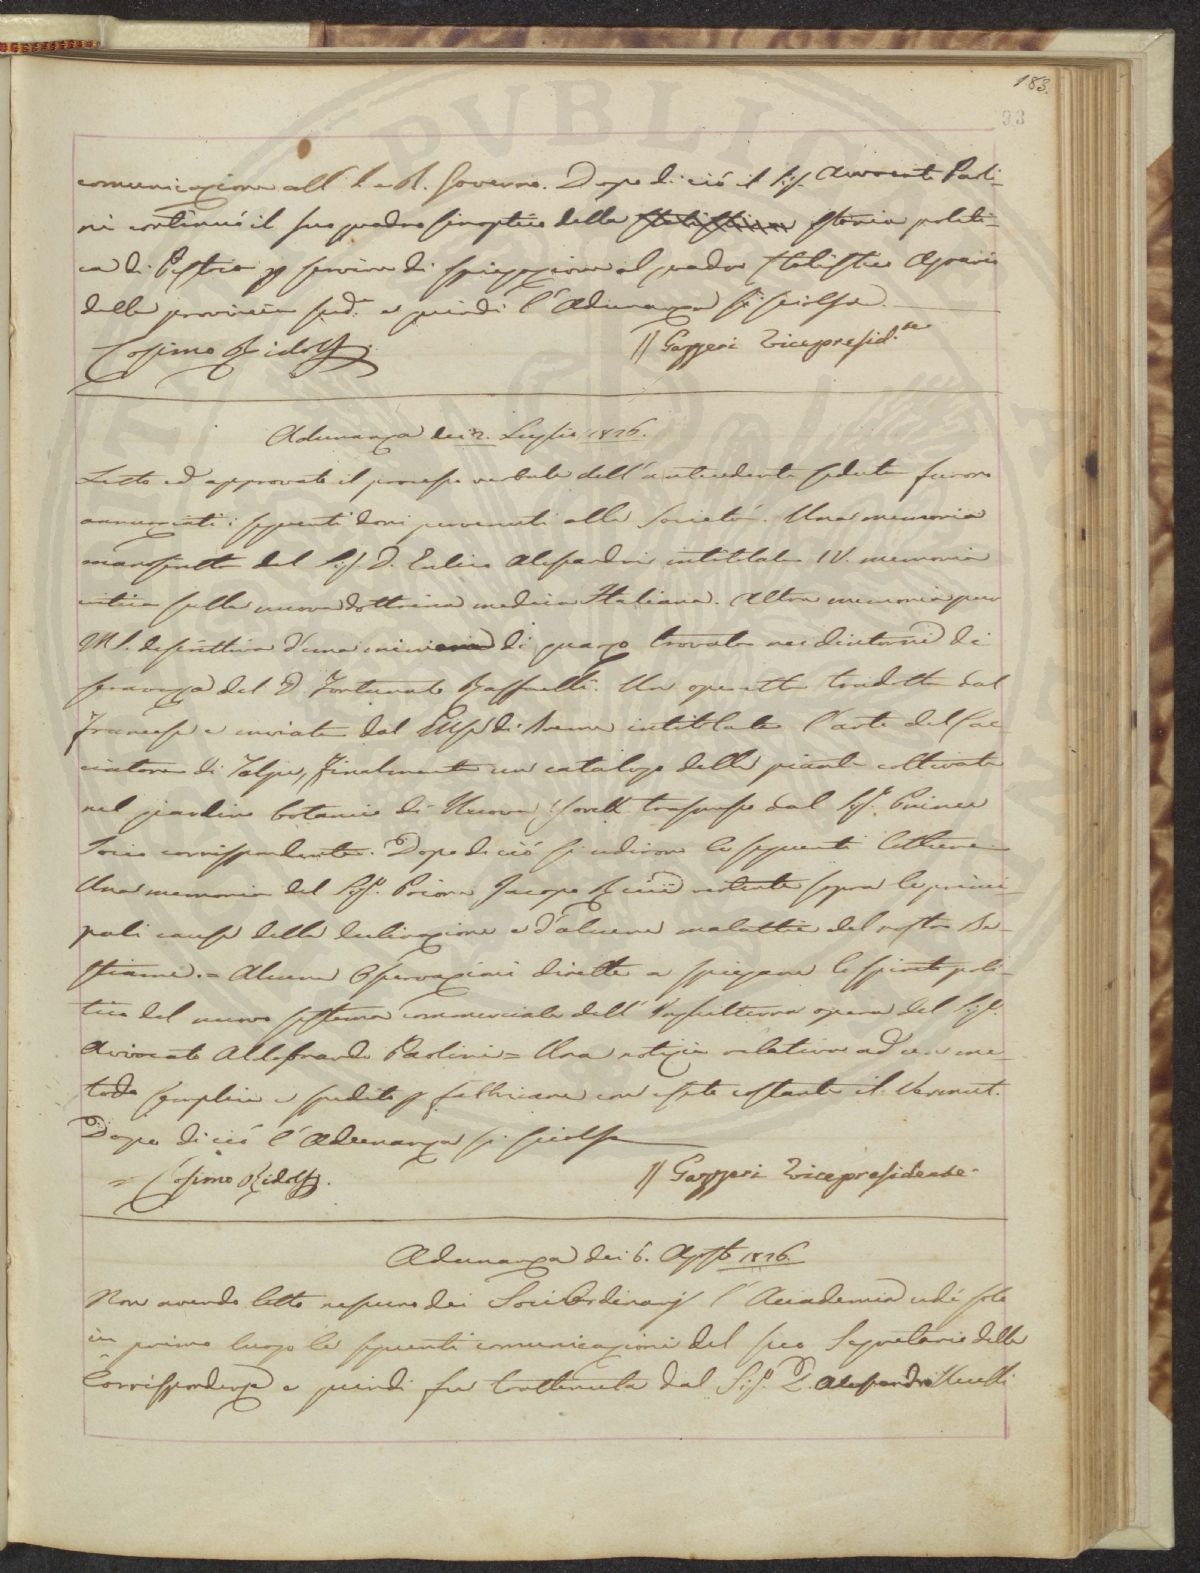 183.
93
comunicazione all' I. e R. Governo. Dopo di ciò il Sig. Avvocato Paoli-
ni continuò il suo quadro sinoptico della Storia politi-
ca di Pistoia p servire di spiegazione al quadro Statistico Agrario
della provincia sud.ª e quindi l'Adunanza si sciolse.
Cosimo Ridolfi. G Gazzeri Vicepresid.te
Adunanza dei 2. Luglio 1826.
Letto ed approvato il processo verbale dell'antecedente seduta furono
annunziati i seguenti doni pervenuti alla Società. Una memoria
manoscritta del Sig. D. Alessandri intitolata IV. memoria
critica sulla nuova dottrina medica Italiana. Altra memoria pur
MS. descrittiva d'una miniera di quarzo trovata nei dintorni di
Seravezza del D. Fortunato Raffaelli. Un operetta tradotta dal
Francese e inviata dal intitolata l'arte del Cac-
ciatore di Talpe, Finalmente un catalogo delle piante coltivate
nel giardino botanico di Nuova York trasmesso dal Sig.
Socio corrispondente. Dopo di ciò si udirono le seguenti letture
Una memoria del Sig. Priore Jacopo Ricci vertente sopra le princi-
pali cause della declinazione e d'alcune malattie del nostro Be-
stiame. = Alcune Osservazioni dirette a spiegare lo spirito poli-
tico del nuovo sistema commerciale dell'Inghilterra opera del Sig.
Avvocato Aldobrando Paolini = Una notizia relativa ad un me-
todo semplice e spedito p fabbricare con esito costante il Vermut.
Dopo di ciò l'Adunanza si sciolse
= Cosimo Ridolfi. G Gazzeri Vicepresidente.
Adunanza dei 6. Agosto 1826.
Non avendo letto nessuno dei Soci Ordinarj l'Accademia udì solo
in primo luogo le seguenti comunicazioni del suo Segretario delle
Corrispondenze e quindi fu trattenuta dal Sig. D. Alessandro